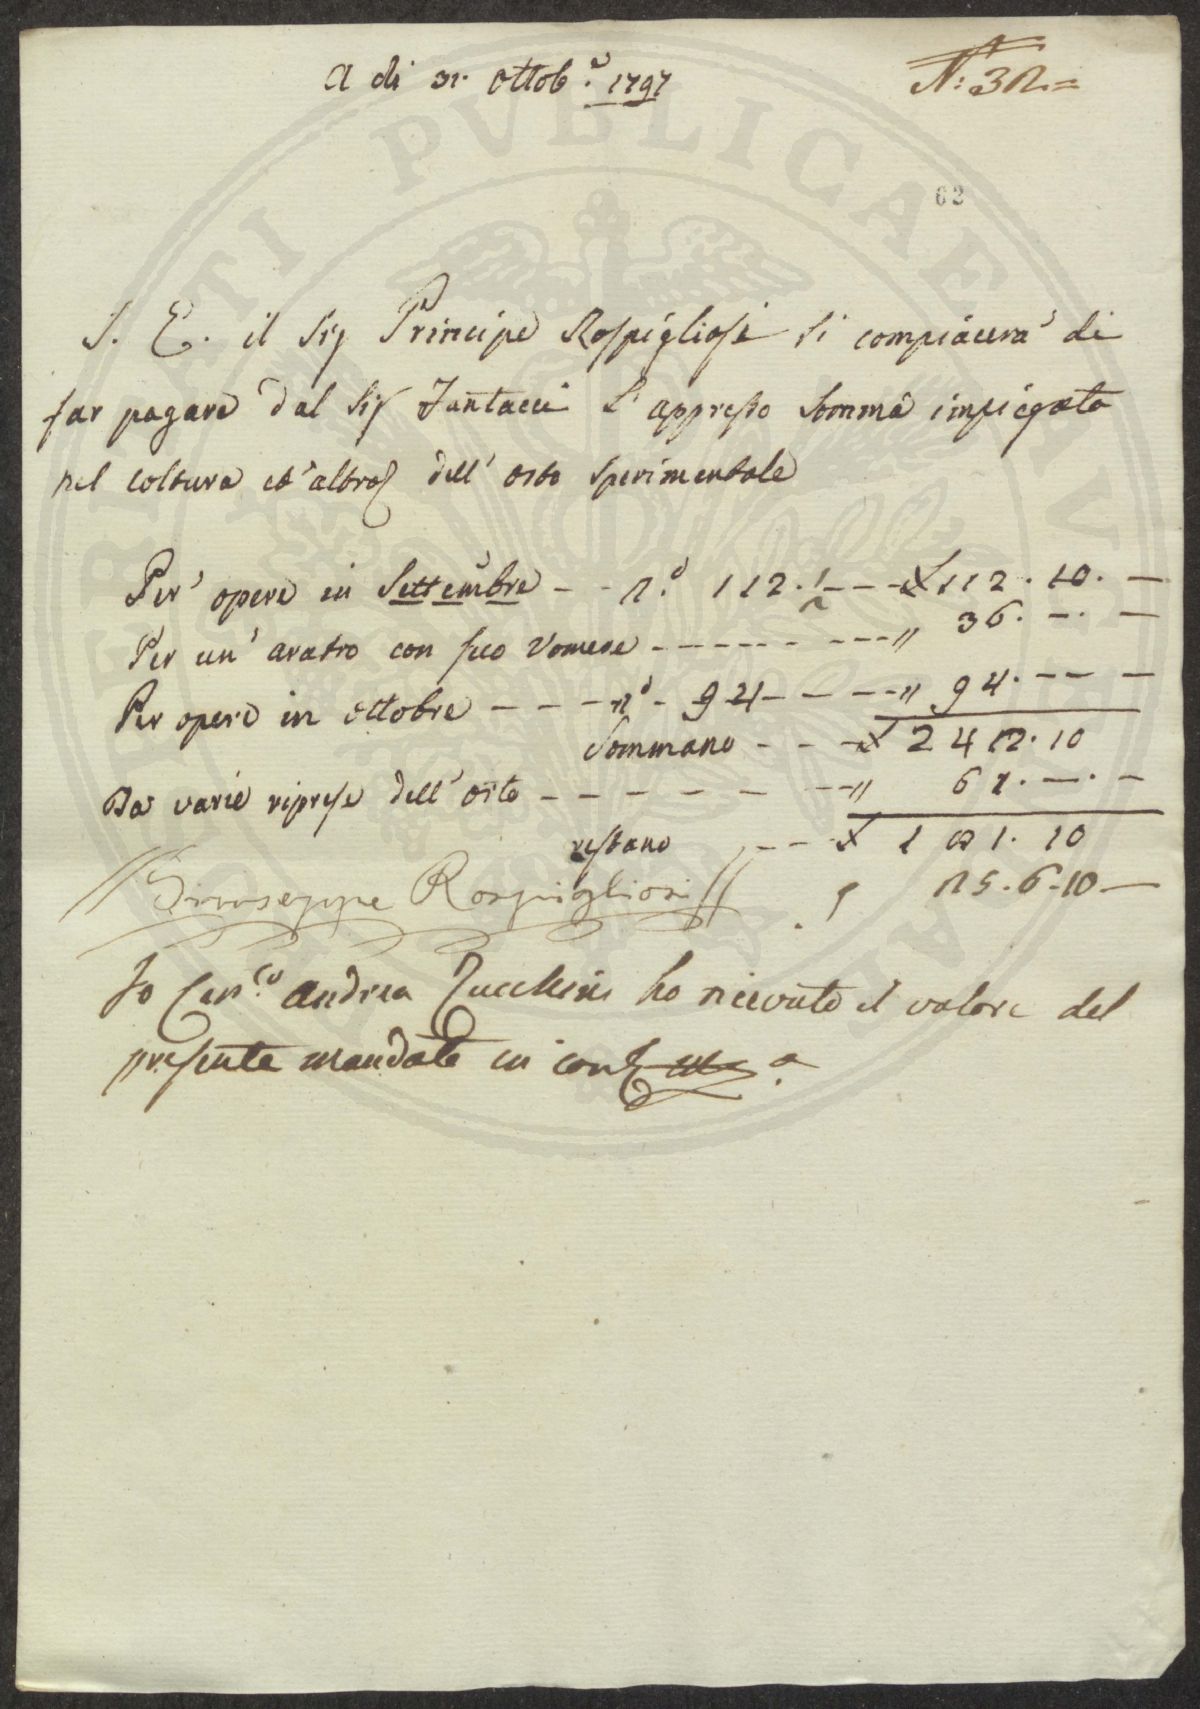 A di 31. Ottob.e 1797
N: 32 =
62
S. E. il Sig Principe Rospigliosi si compiacera' di
far pagare dal Sig Fantacci l'appresso somma impiegata
nel coltura ed altro dell' orto sperimentale
Per opere in Settembre -- n.o 112. 1/2 --- £ 112. 10. —
Per un' aratro con suo vomere --- " 36. —. —
Per opere in ottobre --- n.o 94 --- " 94. — —
Sommano --- £ 242. 10
Da varie riprese dell' orto --- " 61. —. —
restano --- £ 181. 10
Giuseppe Rospigliosi
25. 6. 10 —
Io Can.co Andrea Zucchini ho ricevuto il valore del
presente mandato in